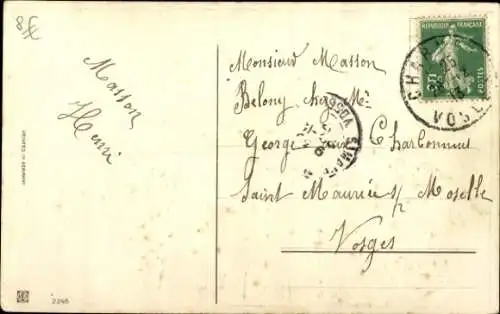 8€
Masson
Henri
Monsieur Masson
Belony chez Mr
Georges Charbonnier
Saint Maurice s/ Moselle
Vosges
REPUBLIQUE FRANÇAISE
POSTES
CHARM
VOSGES
2246